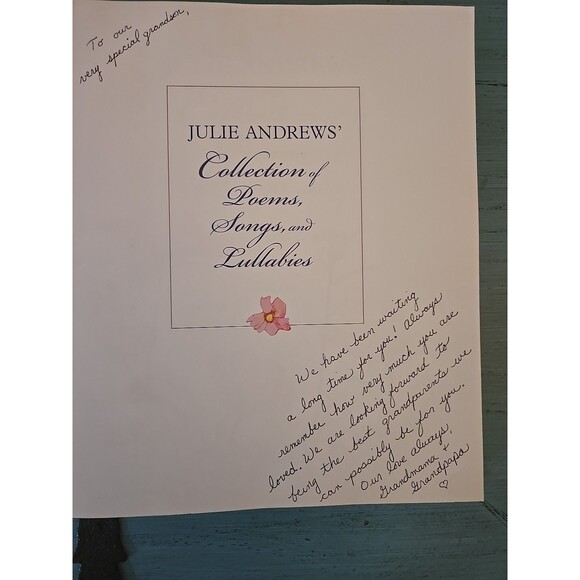 To our
very special grandson,
JULIE ANDREWS'
Collection of
Poems,
Songs, and
Lullabies
We have been waiting
a long time for you! Always
remember how very much you are
loved. We are looking forward to
being the best grandparents we
can possibly be for you.
Our love always,
Grandmama +
Grandpapa
♡